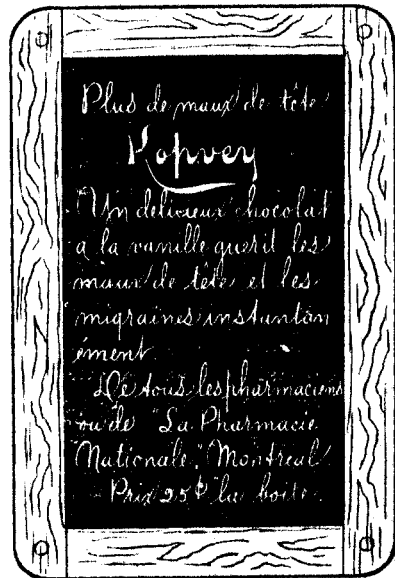 Plus de maux de tête
Kopvey
Un delicieux chocolat
a la vanille guerit les
maux de tête et les
migraines instantan
ément.
De tous les pharmaciens
ou de "La Pharmacie
Nationale," Montreal
Prix 25¢ la boite.